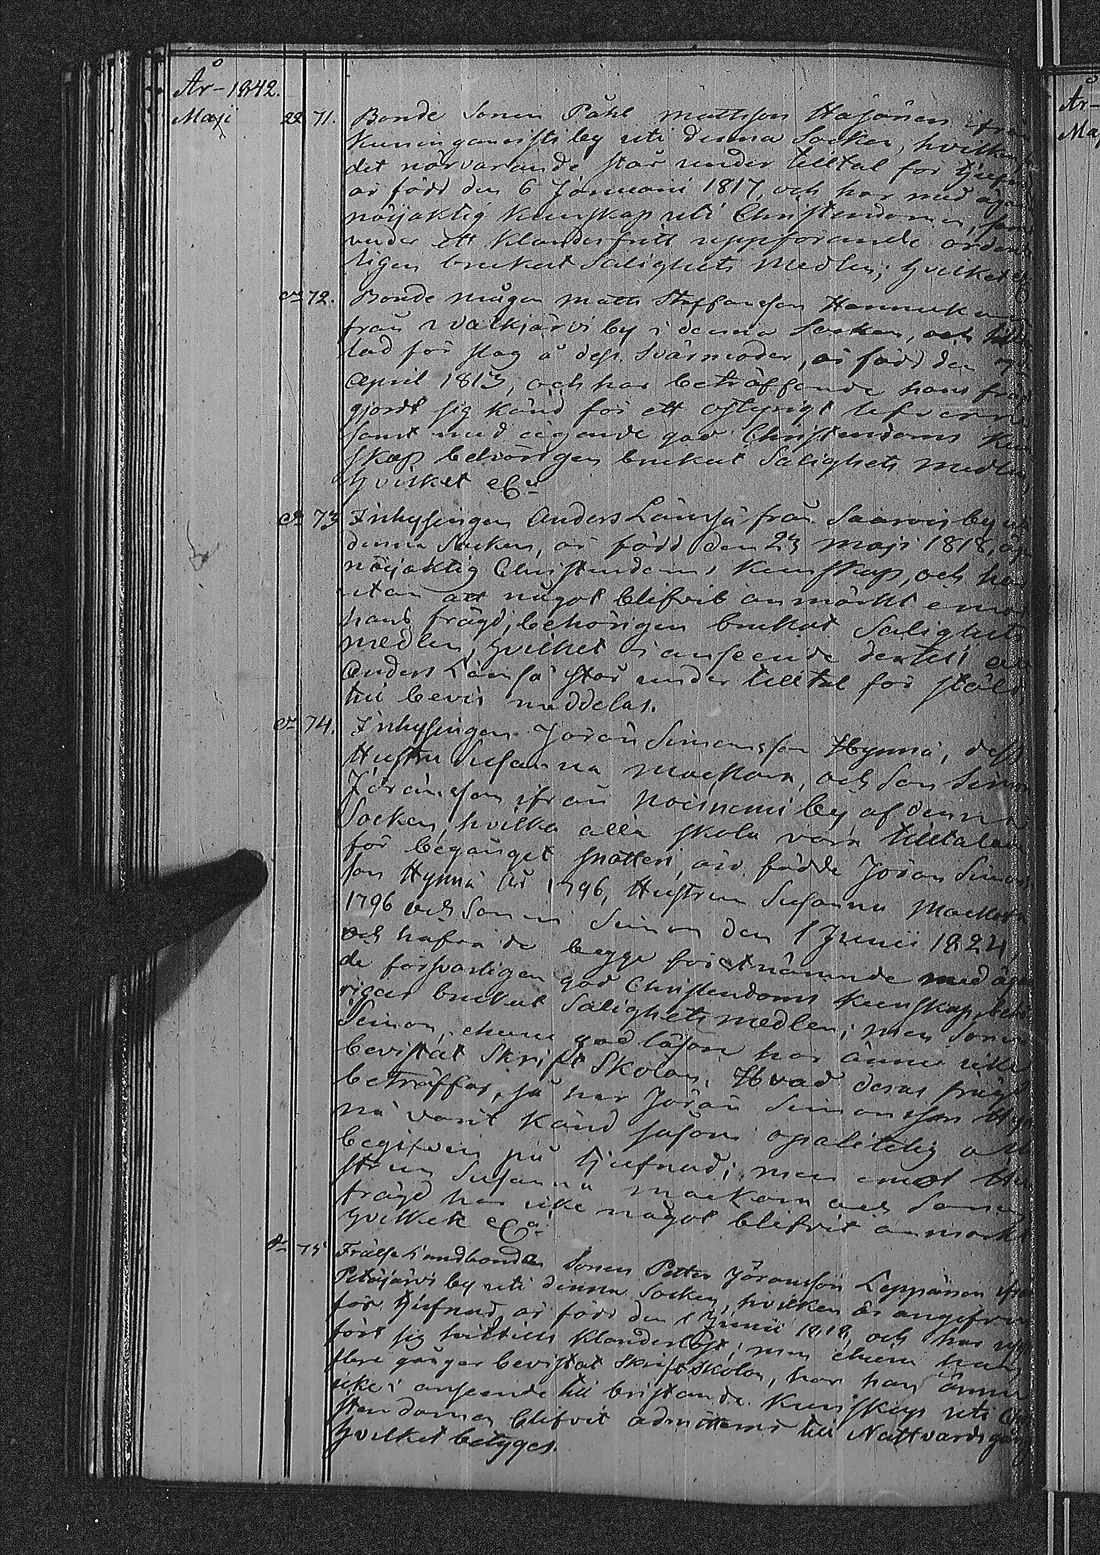 År 1842.
Maji 22 71. Bonde Sonen Påhl Mattsson Hajänen ifrån
by uti denna Socken, hvilken
det närvarande står under tilltal för tjufnad
är född den 6 Januarii 1817, och har med ägande
nöijaktig kunskap uti Christendomen, samt
under ett klanderfritt uppförande orden
ligen brukat Salighets Medlen; hvilket &c
72. Bonde mågen Matts Staffansson Hannukainen
från Valkjärvi by i denna Socken, och tillta
lad för slag å dess Svärmoder, är född den
April 1813, och har beträffande hans frägd
gjordt sig känd för ett ostyrigt lefverne
samt med ägande god Christendoms kun
skap behörigen brukat Salighets medlen
hvilket &c
73 Inhysingen Anders Länsä från by i
denna Socken, är född den 23 Maji 1818, äger
nöijaktig Christendoms kunskap, och har
utan att något blifvit anmärkt emot
hans frägd, behörigen brukat Salighets
medlen, hvilket i anseende dertill att
Anders Länsä står under tilltal för stöld
till bevis meddelas.
74. Inhysingen Jöran Simonsson Hynnä, dess
Hustru Susanna Mackora, och Son Simon
Jöransson, ifrån Noisniemi by af denna
Socken, hvilka alla skola vara tilltalade
för begånget snatteri, äro födde Jöran Simons
son Hynnä År 1796, Hustrun Susanna Mackora
1796 och Sonen Simon den 1 Junii 1824,
och hafva de begge förstnämnde med ägan
de försvarligen god Christendoms kunskap, behö
rigen brukat Salighets medlen; men Sonen
Simon, ehuru god läsare har ännu icke
bevistat Skrift Skolan. Hvad deras frägd
beträffar, så har Jöran Simonsson Hyn
nä varit känd såsom opålitelig och
begifven på tjufnad; men emot Hu
strun Susanna Mackora och Sonens
frägd har icke något blifvit anmärkt
hvilket &c
75 Frälse Landbonde Sonen Petter Jöransson Leppänen ifrån
Petäjärvi by uti denna Socken, hvilken är angifven
för tjufnad, är född den 1 Junii 1818, och har upp
fört sig hittills klanderlöst; men ehuru han
flere gånger bevistat Skrift Skolan, har han ännu
icke i anseende till bristande kunskap uti Chri
stendomen blifvit admitterad till Nattvards gång
hvilket betyges.
År
Maj